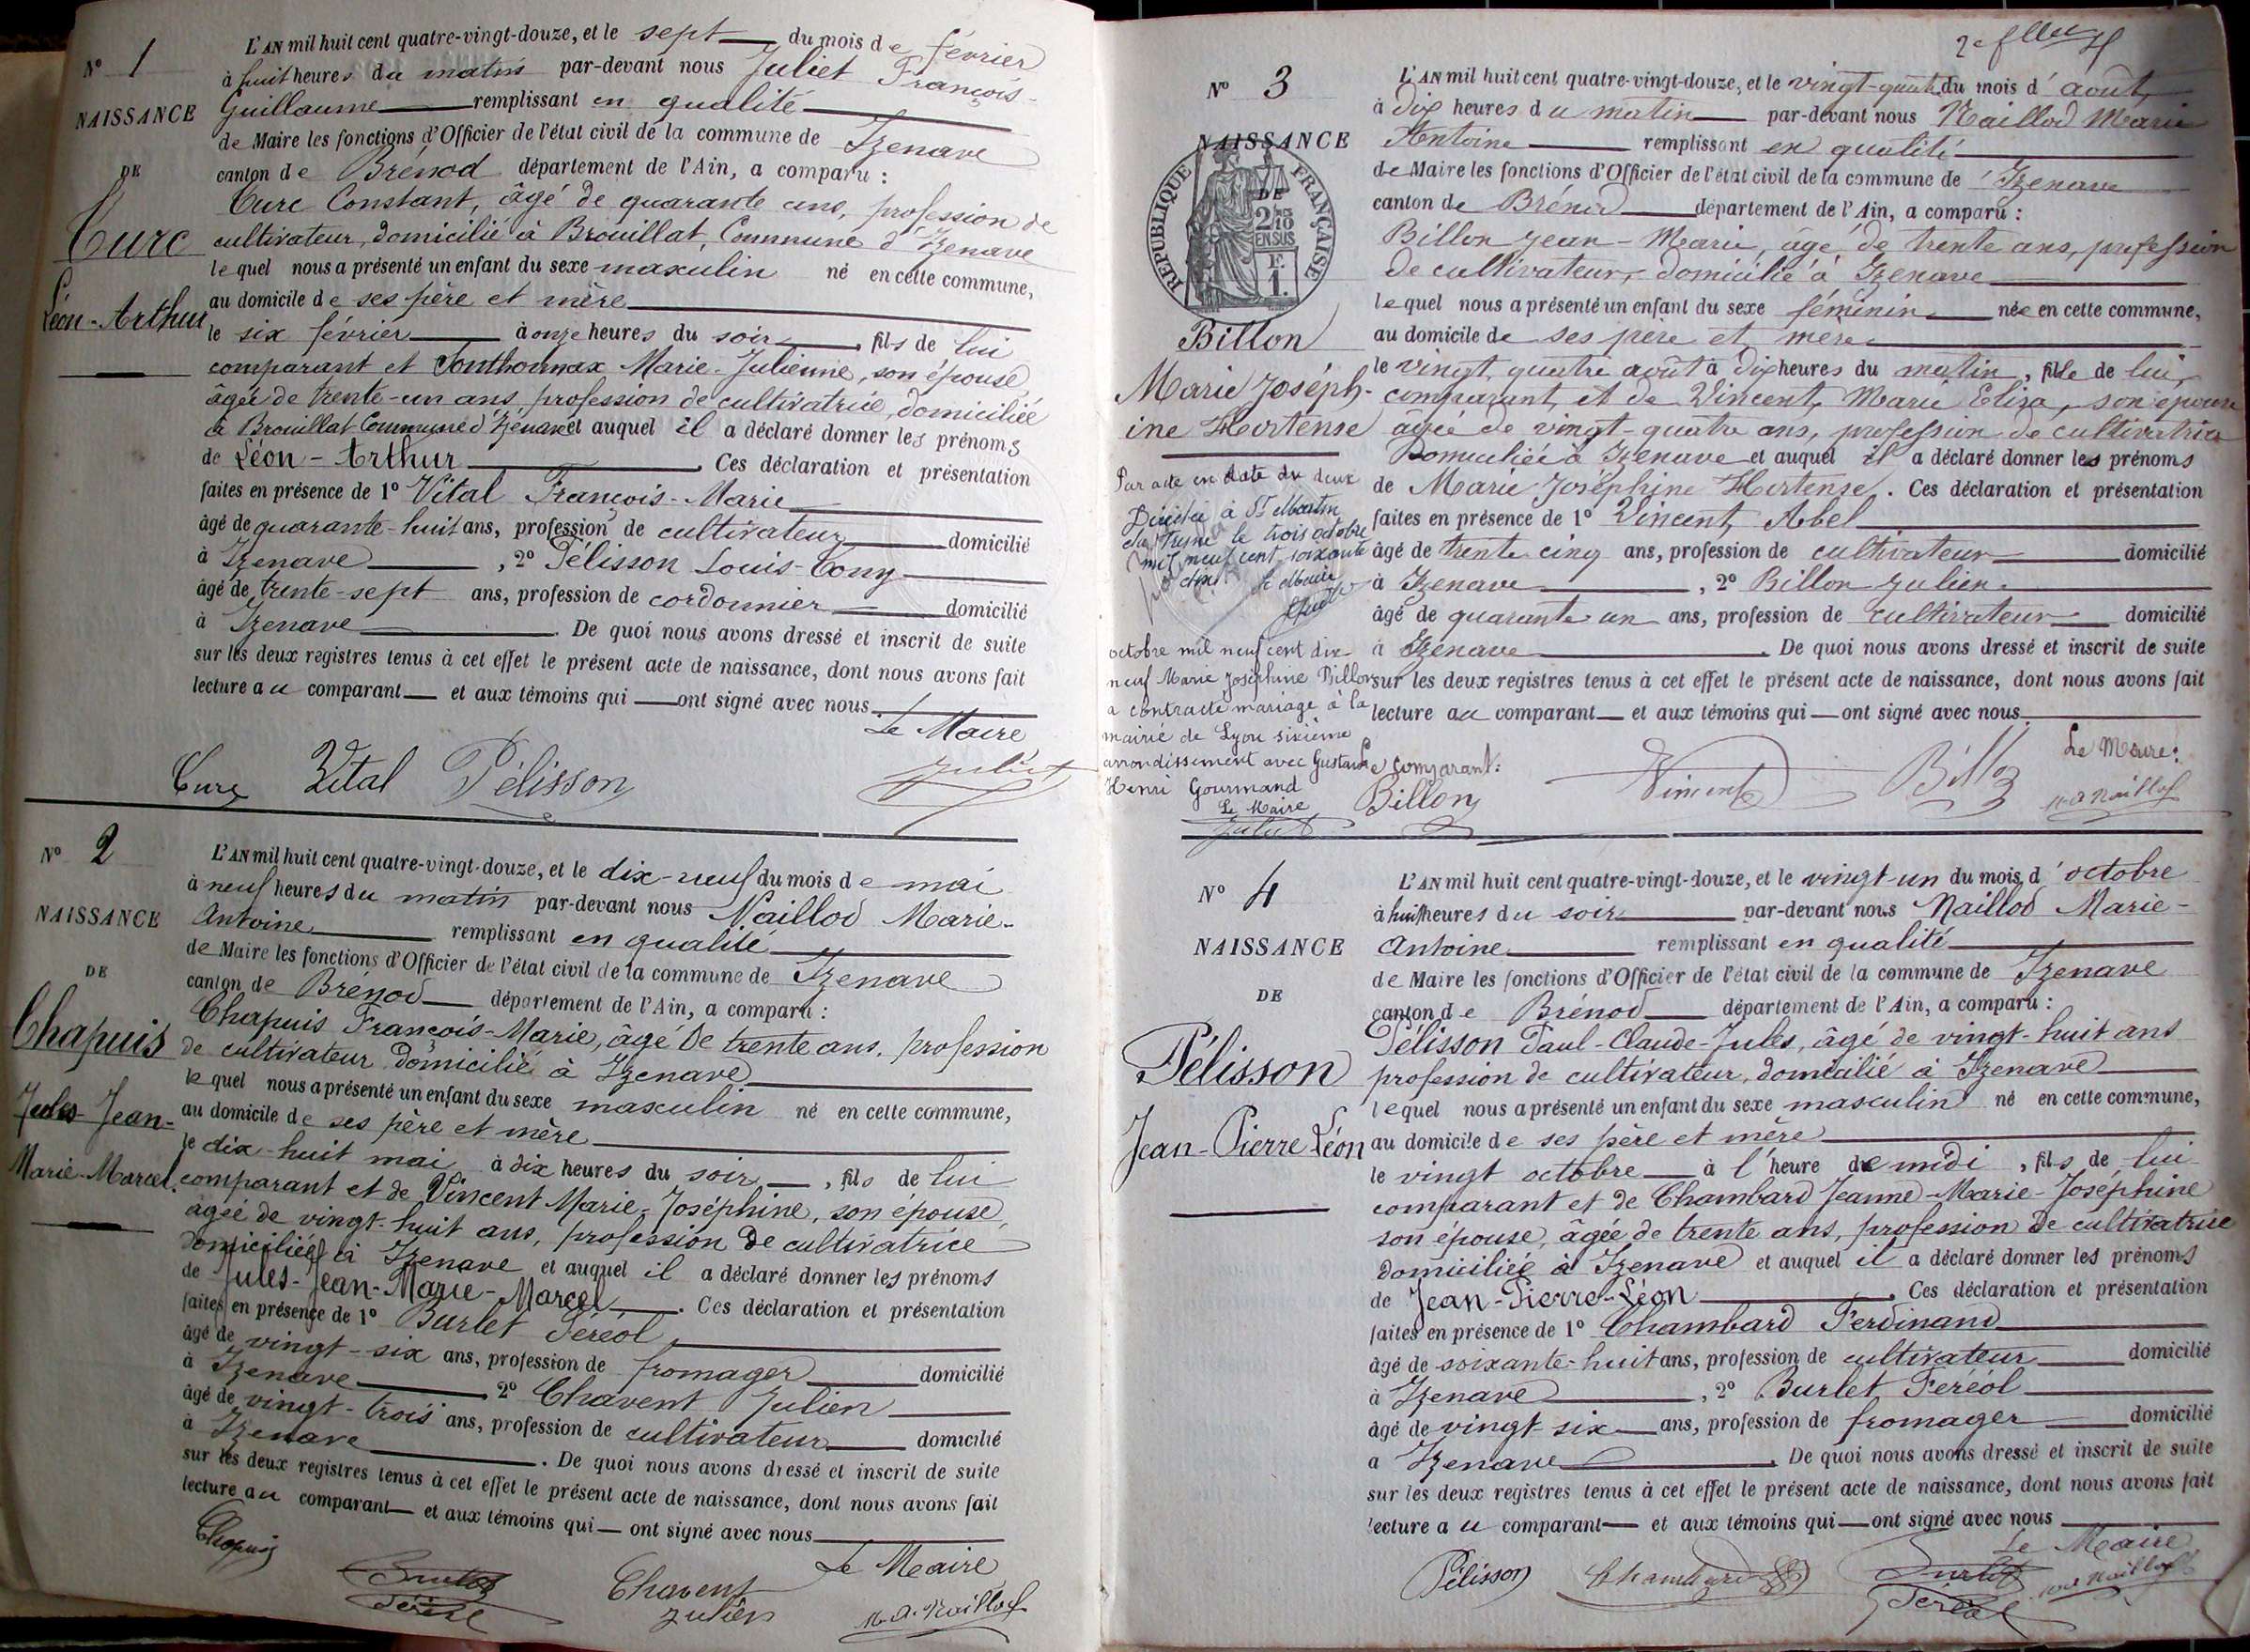 N° 1
NAISSANCE
DE
Curc
Léon-Arthur
L'AN mil huit cent quatre-vingt-douze, et le sept du mois de février
à huit heures du matin par-devant nous Juliet François-
Guillaume remplissant en qualité
de Maire les fonctions d'Officier de l'état civil de la commune de Izenave
canton de Brénod département de l'Ain, a comparu :
Curc Constant, âgé de quarante ans, profession de
cultivateur, domicilié à Brouillat, Commune d'Izenave
lequel nous a présenté un enfant du sexe masculin né en cette commune,
au domicile de ses père et mère
le six février à onze heures du soir, fils de lui
comparant et Tonthonnax Marie-Julienne, son épouse,
âgée de trente-un ans, profession de cultivatrice, domiciliée
à Brouillat Commune d'Izenave et auquel il a déclaré donner les prénoms
de Léon-Arthur. Ces déclaration et présentation
faites en présence de 1° Vital François-Marie
âgé de quarante-huit ans, profession de cultivateur domicilié
à Izenave, 2° Pélisson Louis-Tony
âgé de trente-sept ans, profession de cordonnier domicilié
à Izenave. De quoi nous avons dressé et inscrit de suite
sur les deux registres tenus à cet effet le présent acte de naissance, dont nous avons fait
lecture au comparant et aux témoins qui ont signé avec nous.
Le Maire
Curc Vital Pélisson Juliet
N° 2
NAISSANCE
DE
Chapuis
Jules-Jean-
Marie-Marcel.
L'AN mil huit cent quatre-vingt-douze, et le dix-neuf du mois de mai
à neuf heures du matin par-devant nous Naillod Marie-
Antoine remplissant en qualité
de Maire les fonctions d'Officier de l'état civil de la commune de Izenave
canton de Brénod département de l'Ain, a comparu :
Chapuis François-Marie, âgé de trente ans, profession
de cultivateur domicilié à Izenave
lequel nous a présenté un enfant du sexe masculin né en cette commune,
au domicile de ses père et mère
le dix-huit mai à dix heures du soir, fils de lui
comparant et de Vincent Marie-Joséphine, son épouse,
âgée de vingt-huit ans, profession de cultivatrice
domiciliée à Izenave et auquel il a déclaré donner les prénoms
de Jules-Jean-Marie-Marcel. Ces déclaration et présentation
faites en présence de 1° Burlet Féréol
âgé de vingt-six ans, profession de fromager domicilié
à Izenave 2° Chavent Julien
âgé de vingt-trois ans, profession de cultivateur domicilié
à Izenave. De quoi nous avons dressé et inscrit de suite
sur les deux registres tenus à cet effet le présent acte de naissance, dont nous avons fait
lecture au comparant et aux témoins qui ont signé avec nous
Le Maire
Chapuis Burlet Chavent M. A. Naillod
Féréol Julien
N° 3
NAISSANCE
DE
RÉPUBLIQUE FRANÇAISE
2/10
EN SUS
F.
1.
Billon
Marie Joséph-
ine Hortense
Par acte en date du deux
Décédée à St Martin
du Fresne le trois octobre
mil neuf cent soixante
Le Maire
octobre mil neuf cent dix
neuf Marie Joséphine Billon
a contracté mariage à la
mairie de Lyon sixième
arrondissement avec Gustave
Henri Gourmand
Le Maire
Juliet
L'AN mil huit cent quatre-vingt-douze, et le vingt-quatre du mois d'août,
à dix heures du matin par-devant nous Naillod Marie
Antoine remplissant en qualité
de Maire les fonctions d'Officier de l'état civil de la commune de Izenave
canton de Brénod département de l'Ain, a comparu :
Billon Jean-Marie, âgé de trente ans, profession
de cultivateur, domicilié à Izenave
lequel nous a présenté un enfant du sexe féminin née en cette commune,
au domicile de ses père et mère
le vingt quatre août à dix heures du matin, fille de lui,
comparant, et de Vincent, Marie Elisa, son épouse
âgée de vingt-quatre ans, profession de cultivatrice
Domiciliée à Izenave et auquel il a déclaré donner les prénoms
de Marie Joséphine Hortense. Ces déclaration et présentation
faites en présence de 1° Vincent, Abel
âgé de trente cinq ans, profession de cultivateur domicilié
à Izenave, 2° Billon Julien
âgé de quarante un ans, profession de cultivateur domicilié
à Izenave. De quoi nous avons dressé et inscrit de suite
sur les deux registres tenus à cet effet le présent acte de naissance, dont nous avons fait
lecture au comparant et aux témoins qui ont signé avec nous.
Le comparant : Le Maire :
Billon Vincent Billon M A Naillod
N° 4
NAISSANCE
DE
Pélisson
Jean-Pierre Léon
L'AN mil huit cent quatre-vingt-douze, et le vingt-un du mois d'octobre
à huit heures du soir par-devant nous Naillod Marie-
Antoine remplissant en qualité
de Maire les fonctions d'Officier de l'état civil de la commune de Izenave
canton de Brénod département de l'Ain, a comparu :
Pélisson Paul-Claude-Jules, âgé de vingt-huit ans
profession de cultivateur, domicilié à Izenave
lequel nous a présenté un enfant du sexe masculin né en cette commune,
au domicile de ses père et mère
le vingt octobre à l'heure de midi, fils de lui
comparant et de Chambard Jeanne-Marie-Joséphine
son épouse, âgée de trente ans, profession de cultivatrice
domiciliée à Izenave et auquel il a déclaré donner les prénoms
de Jean-Pierre-Léon. Ces déclaration et présentation
faites en présence de 1° Chambard Ferdinand
âgé de soixante-huit ans, profession de cultivateur domicilié
à Izenave, 2° Burlet Féréol
âgé de vingt-six ans, profession de fromager domicilié
à Izenave. De quoi nous avons dressé et inscrit de suite
sur les deux registres tenus à cet effet le présent acte de naissance, dont nous avons fait
lecture au comparant et aux témoins qui ont signé avec nous
Le Maire
Pélisson Chambard Burlet M A Naillod
Féréol